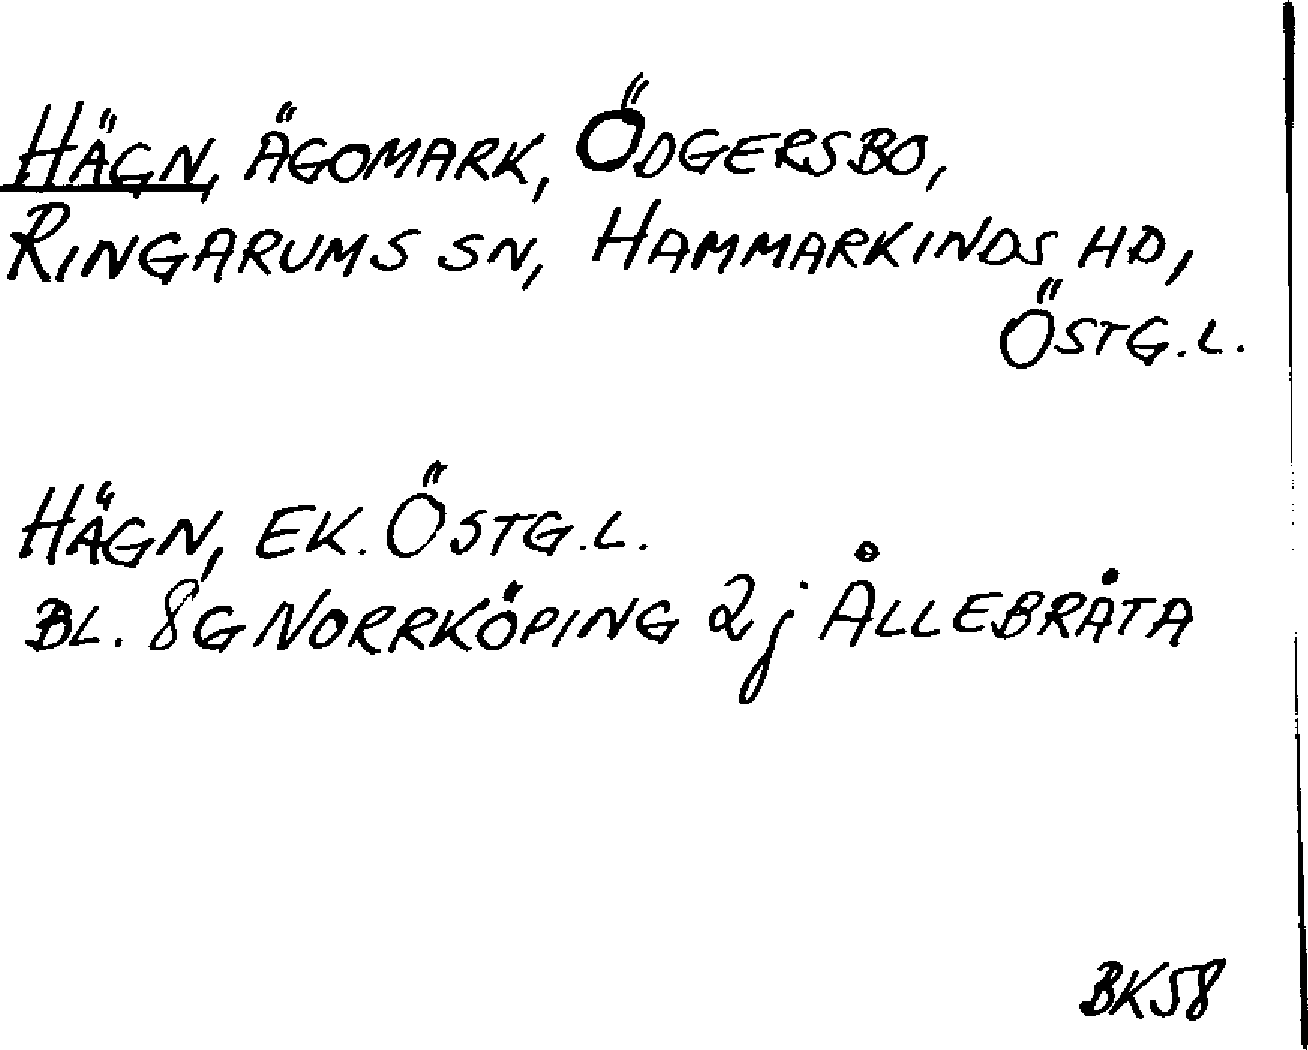 HÄGN, ÄGOMARK, ÖDGERSBO,
RINGARUMS SN, HAMMARKINDS HD,
ÖSTG.L.
HÄGN, EK. ÖSTG.L.
BL. 8G NORRKÖPING 2j ÅLLEBRÅTA
BK58